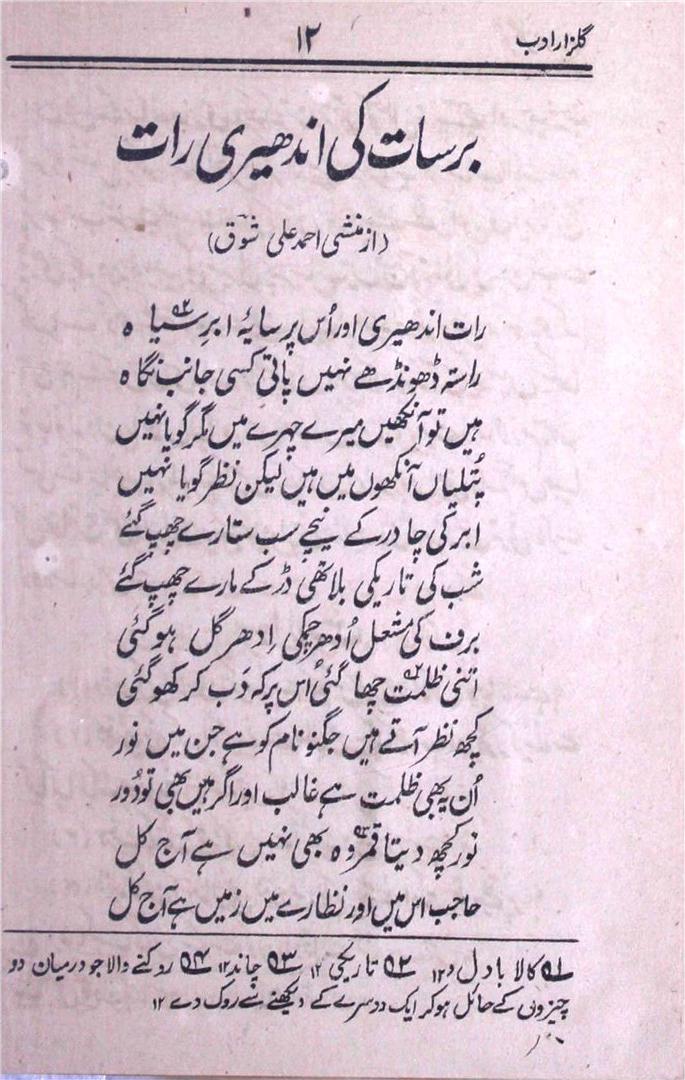 گلزار ادب
۱۲
برسات کی اندھیری رات
(از منشی احمد علی شوقؔ)
رات اندھیری اور اُس پر سایۂ ابرِ سیاہ
راستہ ڈھونڈھے نہیں پاتی کسی جانب نگاہ
ہیں تو آنکھیں میرے چہرے میں مگر گویا نہیں
پُتلیاں آنکھوں میں ہیں لیکن نظر گویا نہیں
ابر کی چادر کے نیچے سب ستارے چھپ گئے
شب کی تاریکی بلا تھی ڈر کے مارے چھپ گئے
برف کی مشعل اُدھر چمکی اِدھر گل ہو گئی
اتنی ظلمت چھا گئی اُس پر کہ دَب کر کھو گئی
کچھ نظر آتے ہیں جگنو نام کو ہے جن میں نور
اُن پہ بھی ظلمت ہے غالب اور اگر ہیں بھی تو دُور
نور کچھ دیتا قمر وہ بھی نہیں ہے آج کل
حاجب اس میں اور نظارے میں زمیں ہے آج کل
۱؎ کالا بادل ۱۲ ۲؎ تاریکی ۱۲ ۳؎ چاند ۱۲ ۴؎ روکنے والا جو درمیان دو
چیزوں کے حائل ہو کر ایک دوسرے کے دیکھنے سے روک دے ۱۲